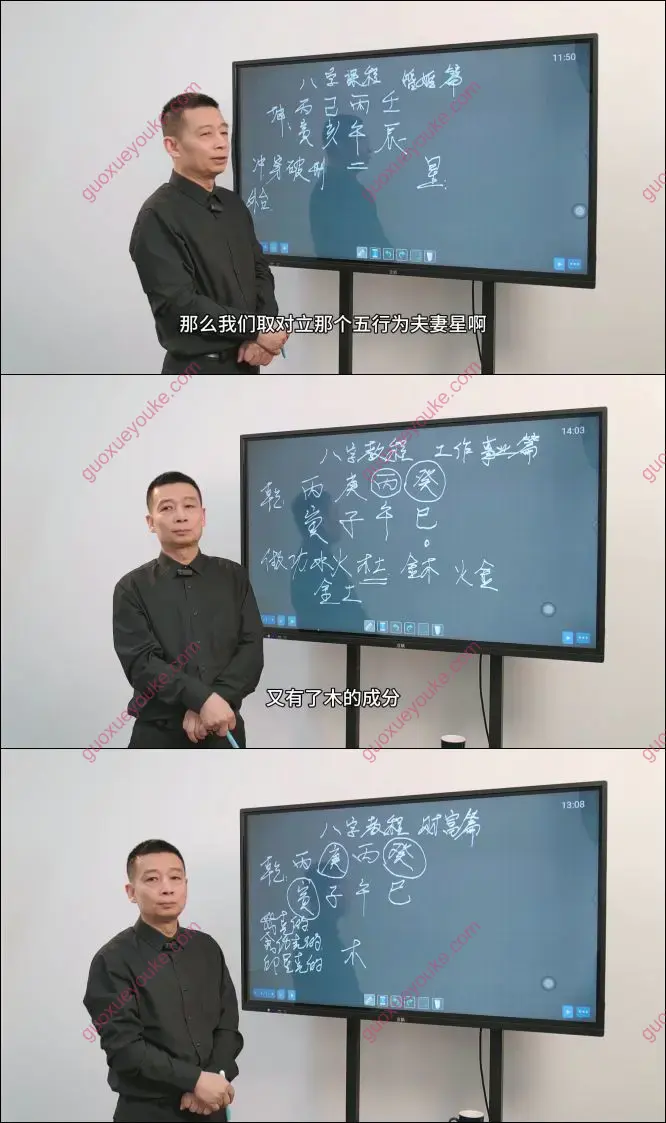 11:50
八字课程 婚姻篇
坤 丙 己 丙 壬
亥 午 辰
冲穿破刑 二 星
合
那么我们取对立那个五行为夫妻星啊
14:03
八字教程 工作事业篇
乾 丙 庚 丙 癸
寅 子 午 巳
做功 水火 木土 金木 火金
金土
又有了木的成分
13:08
八字教程 财富篇
乾 丙 庚 丙 癸
寅 子 午 巳
木
guoxueyouke.com
guoxueyouke.com
guoxueyouke.com
guoxueyouke.com
guoxueyouke.com
guoxueyouke.com